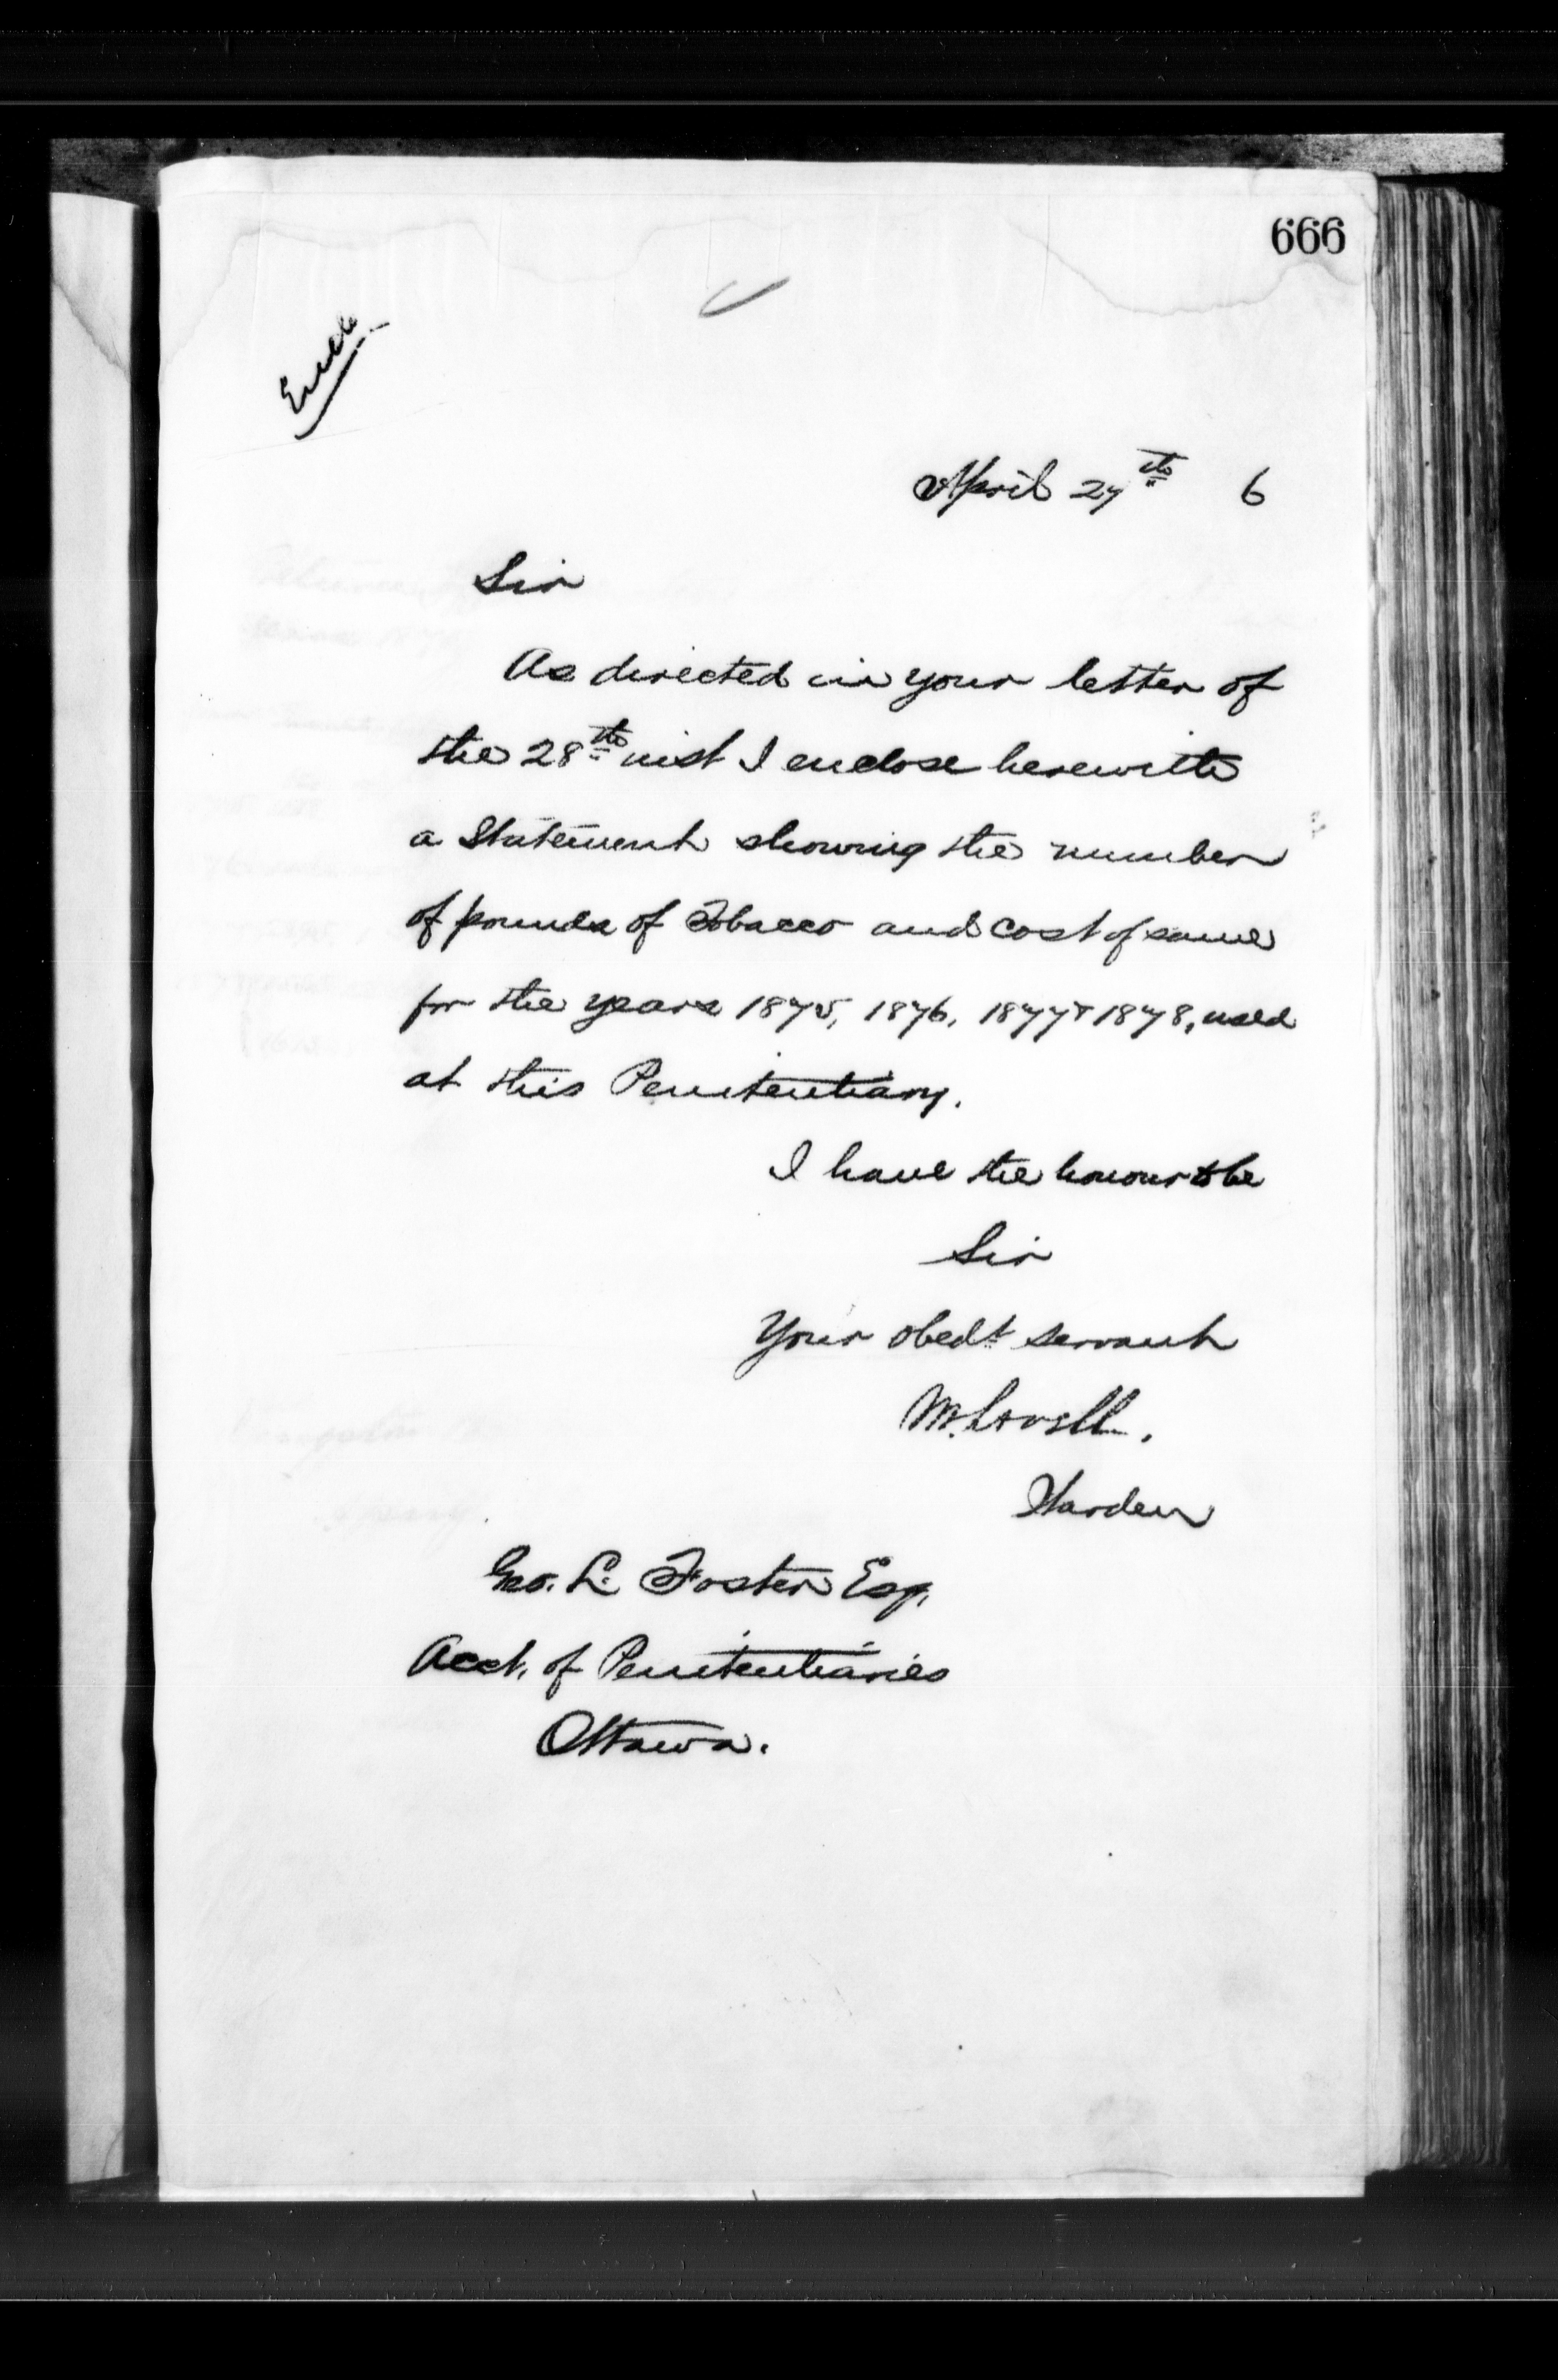 666
Encl.
April 27th 6
Sir
As directed in your letter of
the 28th inst I enclose herewith
a Statement showing the number
of pounds of Tobacco and cost of same
for the years 1875, 1876, 1877 & 1878, used
at this Penitentiary.
I have the honour to be
Sir
Your obedt servant
M. Lavell.
Warden
Geo. L. Foster Esq.
Acct. of Penitentiaries
Ottawa.